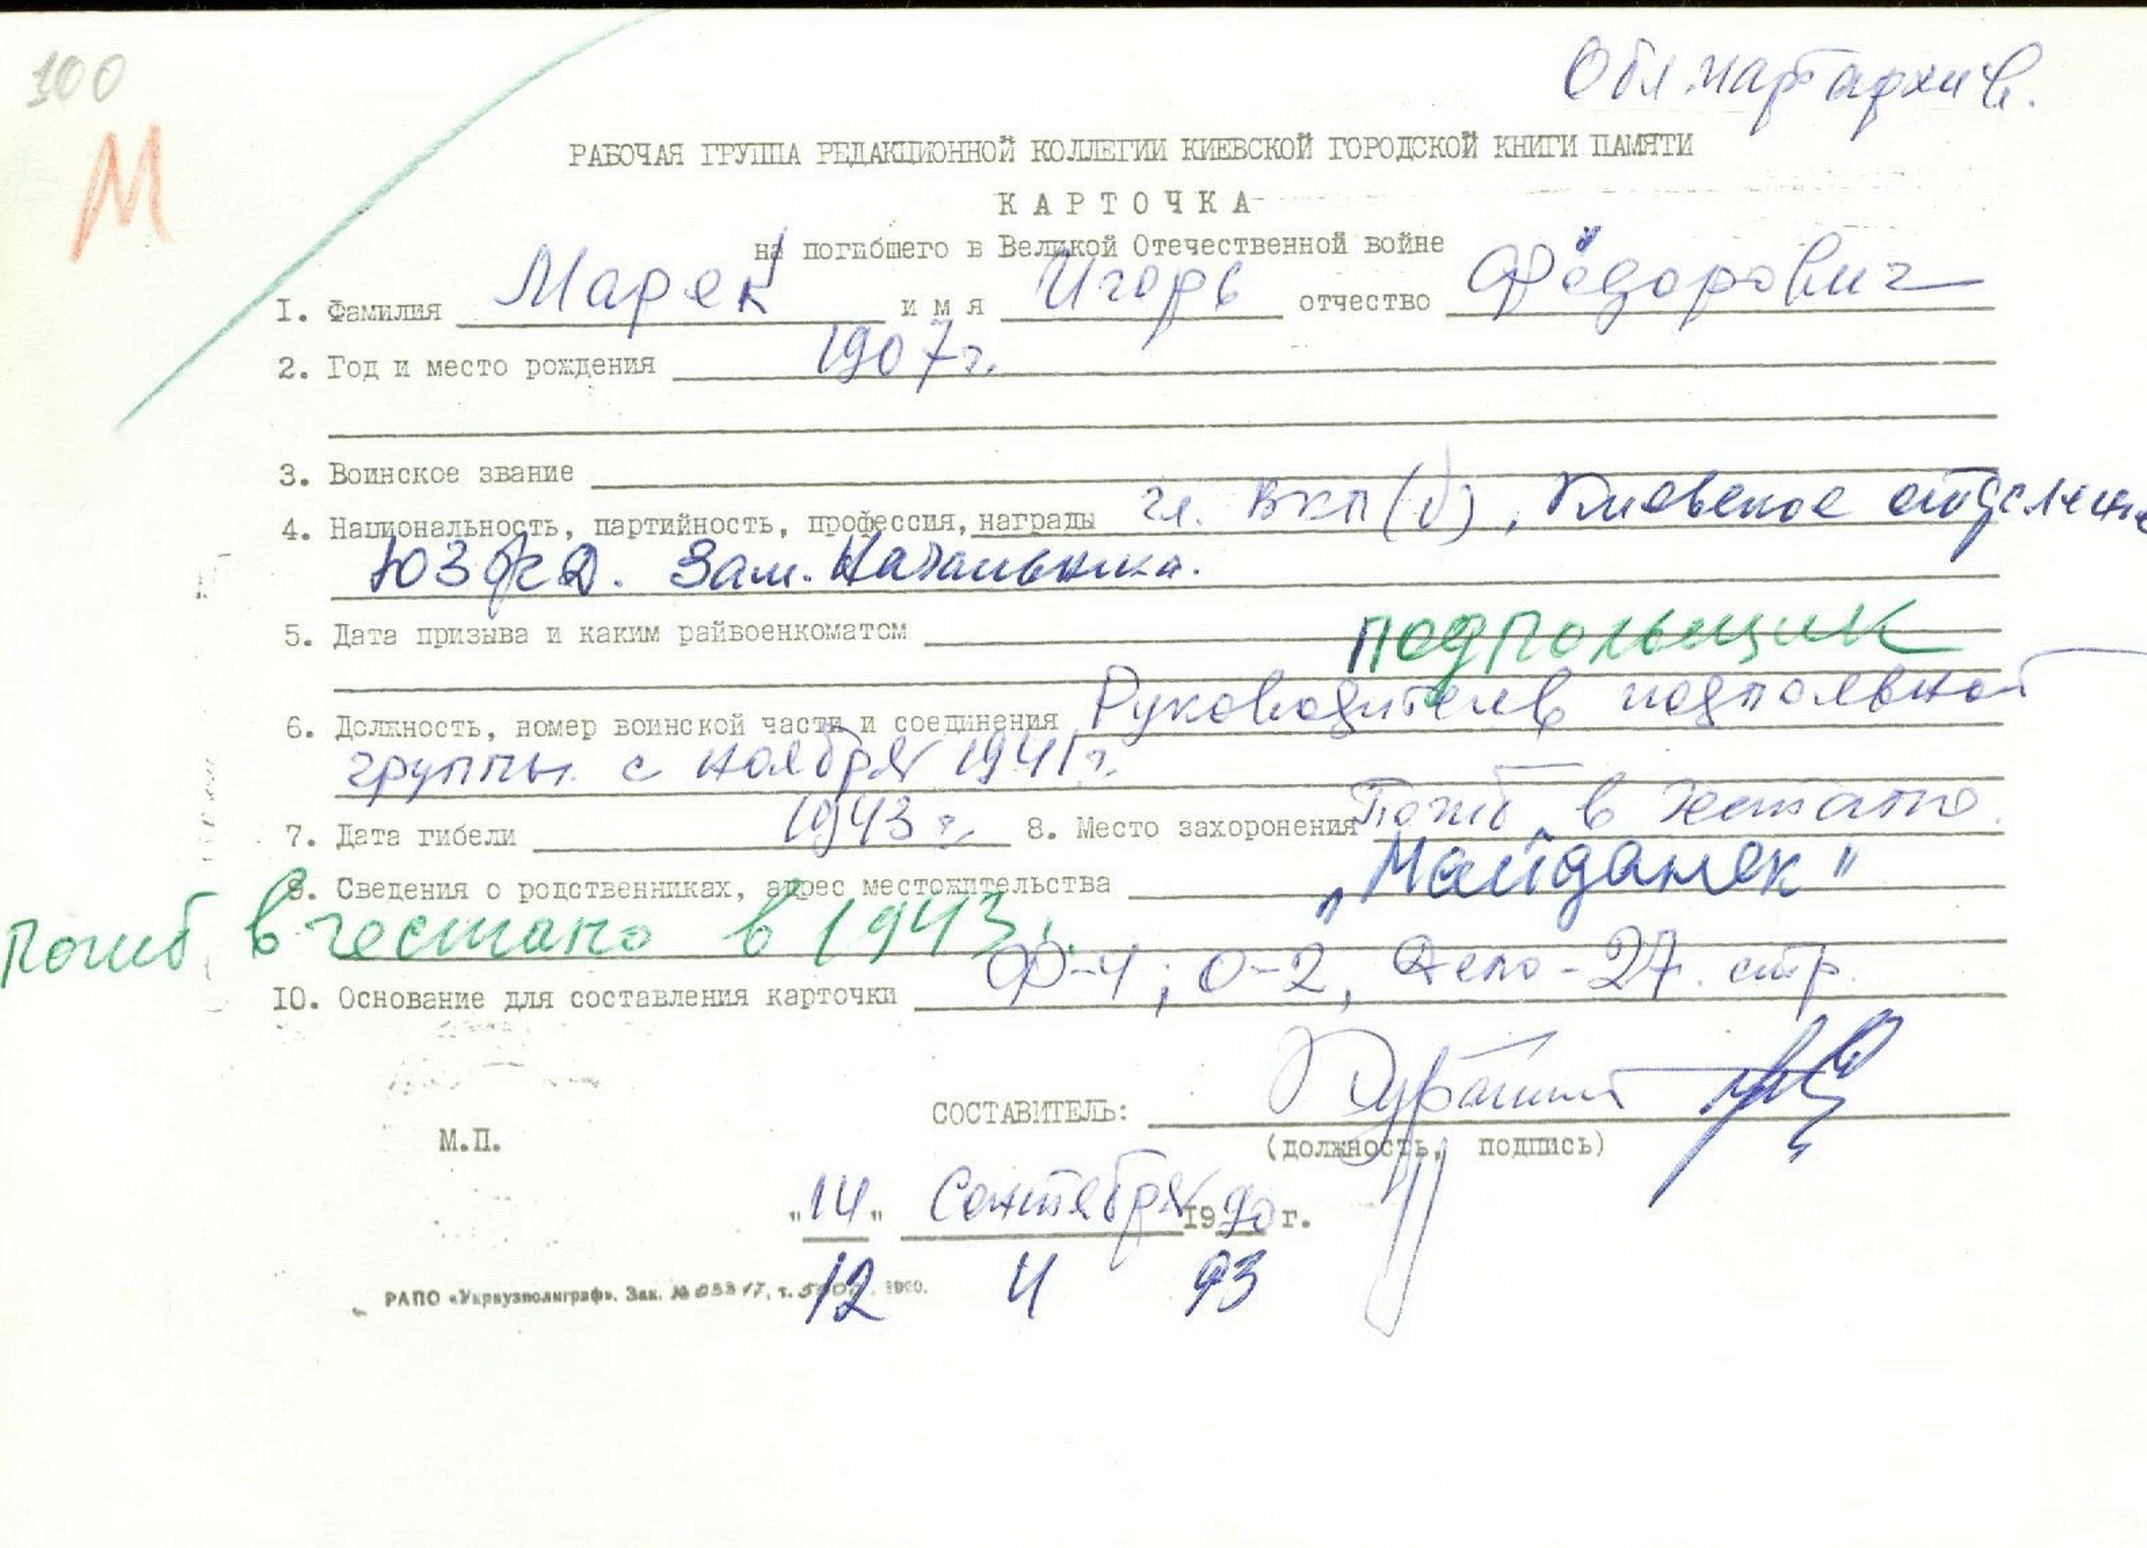 100
М
Обл. парт архив.
РАБОЧАЯ ГРУППА РЕДАКЦИОННОЙ КОЛЛЕГИИ КИЕВСКОЙ ГОРОДСКОЙ КНИГИ ПАМЯТИ
КАРТОЧКА
на погибшего в Великой Отечественной войне
1. Фамилия Марек имя Игорь отчество Фёдорович
2. Год и место рождения 1907 г.
3. Воинское звание
4. Национальность, партийность, профессия, награды чл. ВКП(б), Киевское отделение
ЮЗЖД. Зам. Начальника.
5. Дата призыва и каким райвоенкоматом
подпольщик
6. Должность, номер воинской части и соединения Руководитель подпольной
группы с ноября 1941 г.
7. Дата гибели 1943 г. 8. Место захоронения Погиб в гестапо.
9. Сведения о родственниках, адрес местожительства „Майданек"
Погиб в гестапо в 1943 г.
10. Основание для составления карточки Ф-4; О-2, Дело-27. стр.
СОСТАВИТЕЛЬ:
М.П.
(должность, подпись)
„14" Сентября 1990 г.
12 4 93
РАПО «Укрвузполиграф». Зак. №